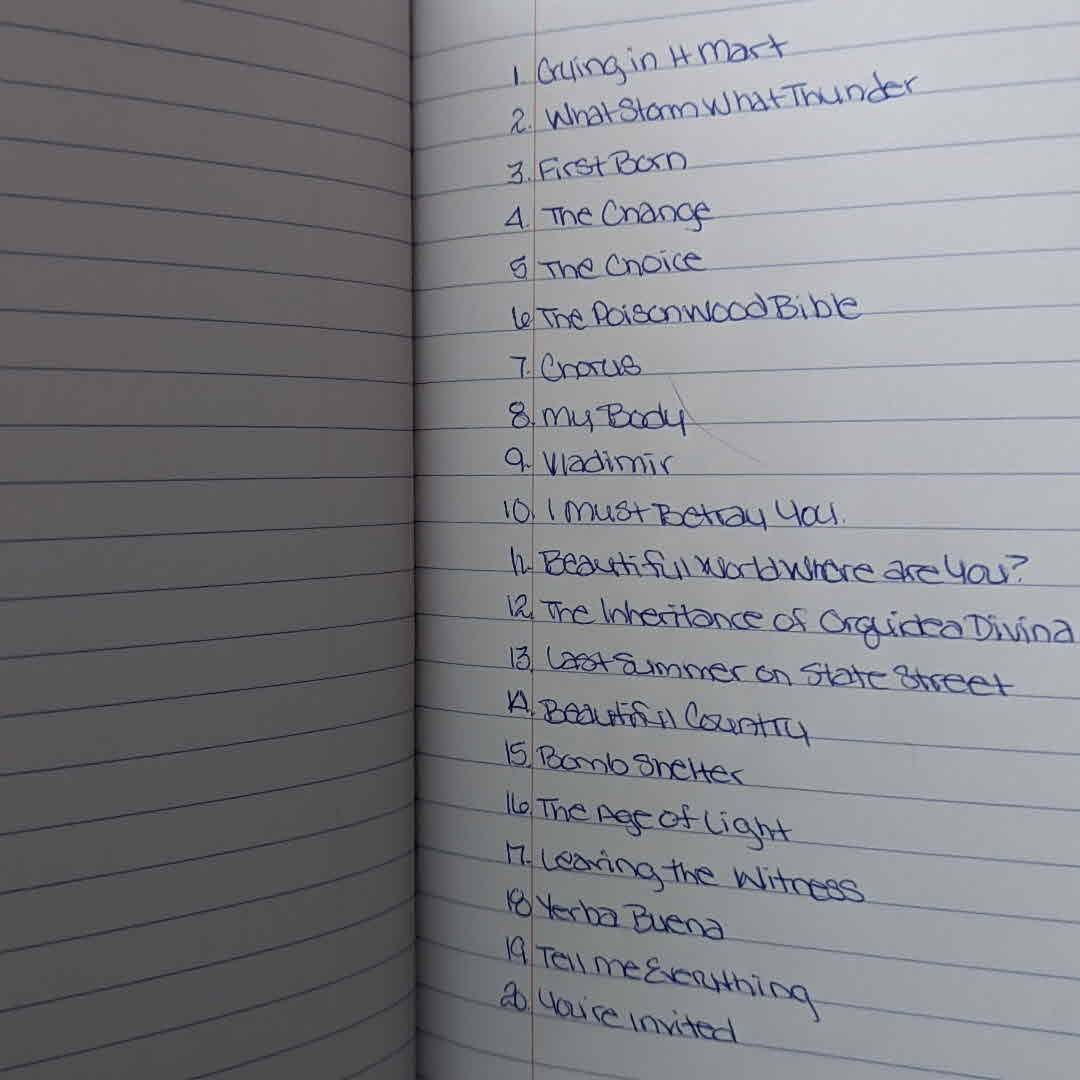 1. Crying in H Mart
2. What Storm What Thunder
3. First Born
4. The Change
5 The Choice
6 The Poisonwood Bible
7. Chorus
8. My Body
9. Vladimir
10. I Must Betray You.
11. Beautiful World Where are You?
12. The Inheritance of Orquidea Divina
13. Last Summer on State Street
14. Beautiful Country
15. Bomb Shelter
16. The Age of Light
17. Leaving the Witness
18 Yerba Buena
19. Tell me Everything
20. You're Invited